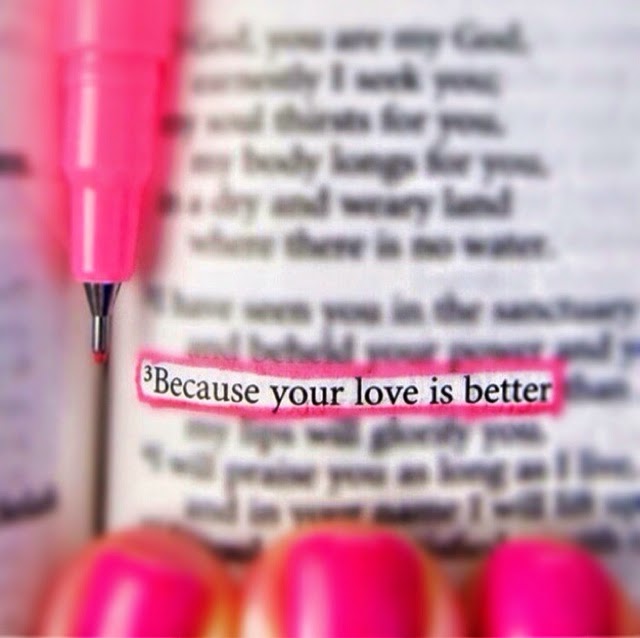 God, you are my God,
earnestly I seek you;
soul thirsts for you,
my body longs for you,
a dry and weary land
where there is no water.
have seen you in the sanctuary
and behold your power and
³Because your love is better than
my lips will glorify you.
I will praise you as long as I live,
and in your name I will lift up